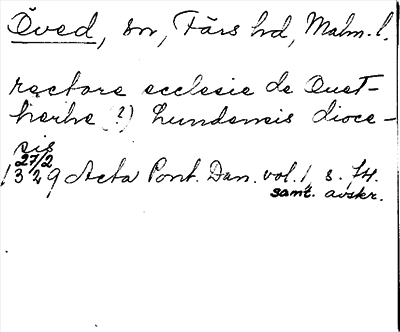 Öved, sn, Färs hd, Malm. l.
rectore ecclesie de Ouet-
herhe (?) Lundensis dioce-
sis
27/2
1329 Acta Pont. Dan. vol. 1, s. 14.
samt. avskr.